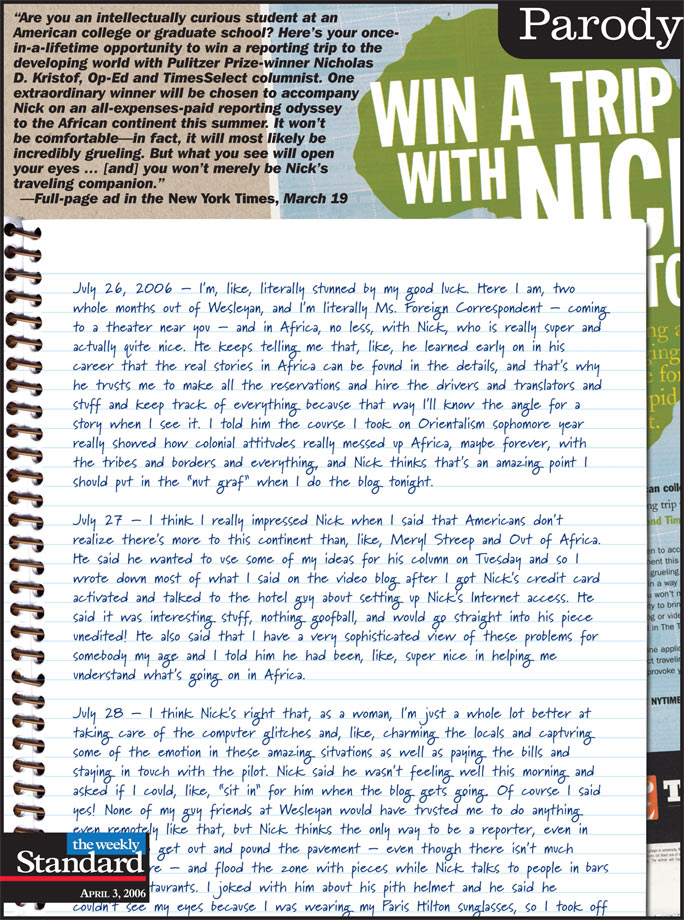 “Are you an intellectually curious student at an
American college or graduate school? Here’s your once-
in-a-lifetime opportunity to win a reporting trip to the
developing world with Pulitzer Prize-winner Nicholas
D. Kristof, Op-Ed and TimesSelect columnist. One
extraordinary winner will be chosen to accompany
Nick on an all-expenses-paid reporting odyssey
to the African continent this summer. It won’t
be comfortable—in fact, it will most likely be
incredibly grueling. But what you see will open
your eyes … [and] you won’t merely be Nick’s
traveling companion.”
—Full-page ad in the New York Times, March 19
Parody
WIN A TRIP
WITH NIC
July 26, 2006 – I’m, like, literally stunned by my good luck. Here I am, two
whole months out of Wesleyan, and I’m literally Ms. Foreign Correspondent – coming
to a theater near you – and in Africa, no less, with Nick, who is really super and
actually quite nice. He keeps telling me that, like, he learned early on in his
career that the real stories in Africa can be found in the details, and that’s why
he trusts me to make all the reservations and hire the drivers and translators and
stuff and keep track of everything because that way I’ll know the angle for a
story when I see it. I told him the course I took on Orientalism sophomore year
really showed how colonial attitudes really messed up Africa, maybe forever, with
the tribes and borders and everything, and Nick thinks that’s an amazing point I
should put in the “nut graf” when I do the blog tonight.
July 27 – I think I really impressed Nick when I said that Americans don’t
realize there’s more to this continent than, like, Meryl Streep and Out of Africa.
He said he wanted to use some of my ideas for his column on Tuesday and so I
wrote down most of what I said on the video blog after I got Nick’s credit card
activated and talked to the hotel guy about setting up Nick’s Internet access. He
said it was interesting stuff, nothing goofball, and would go straight into his piece
unedited! He also said that I have a very sophisticated view of these problems for
somebody my age and I told him he had been, like, super nice in helping me
understand what’s going on in Africa.
July 28 – I think Nick’s right that, as a woman, I’m just a whole lot better at
taking care of the computer glitches and, like, charming the locals and capturing
some of the emotion in these amazing situations as well as paying the bills and
staying in touch with the pilot. Nick said he wasn’t feeling well this morning and
asked if I could, like, “sit in” for him when the blog gets going. Of course I said
yes! None of my guy friends at Wesleyan would have trusted me to do anything
even remotely like that, but Nick thinks the only way to be a reporter, even in
get out and pound the pavement – even though there isn’t much
re – and flood the zone with pieces while Nick talks to people in bars
taurants. I joked with him about his pith helmet and he said he
couldn’t see my eyes because I was wearing my Paris Hilton sunglasses, so I took off
the weekly
Standard
APRIL 3, 2006
NYTIME